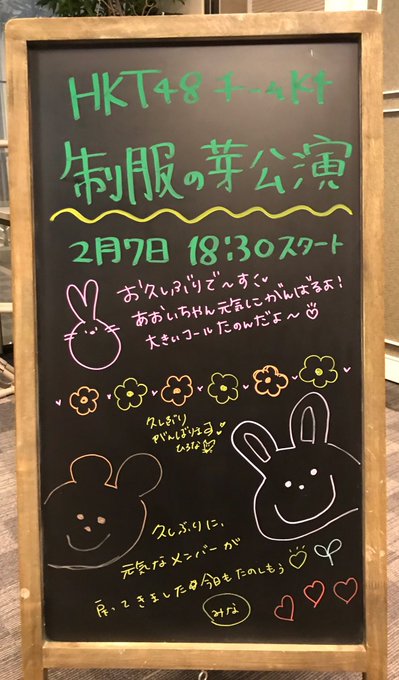 HKT48 チームKⅣ
制服の芽公演
2月7日 18:30スタート
お久しぶりで〜す
あおいちゃん元気にがんばるよ!
大きいコールたのんだよ〜♡
久しぶり
がんばります
ひろな
久しぶりに、
元気なメンバーが
戻ってきました 今日もたのしもう
みな